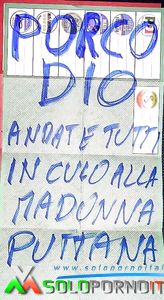 PORCO
DIO
ANDATE TUTTI
IN CULO ALLA
MADONNA
PUTTANA
www.solopornoital
SOLOPORNOIT